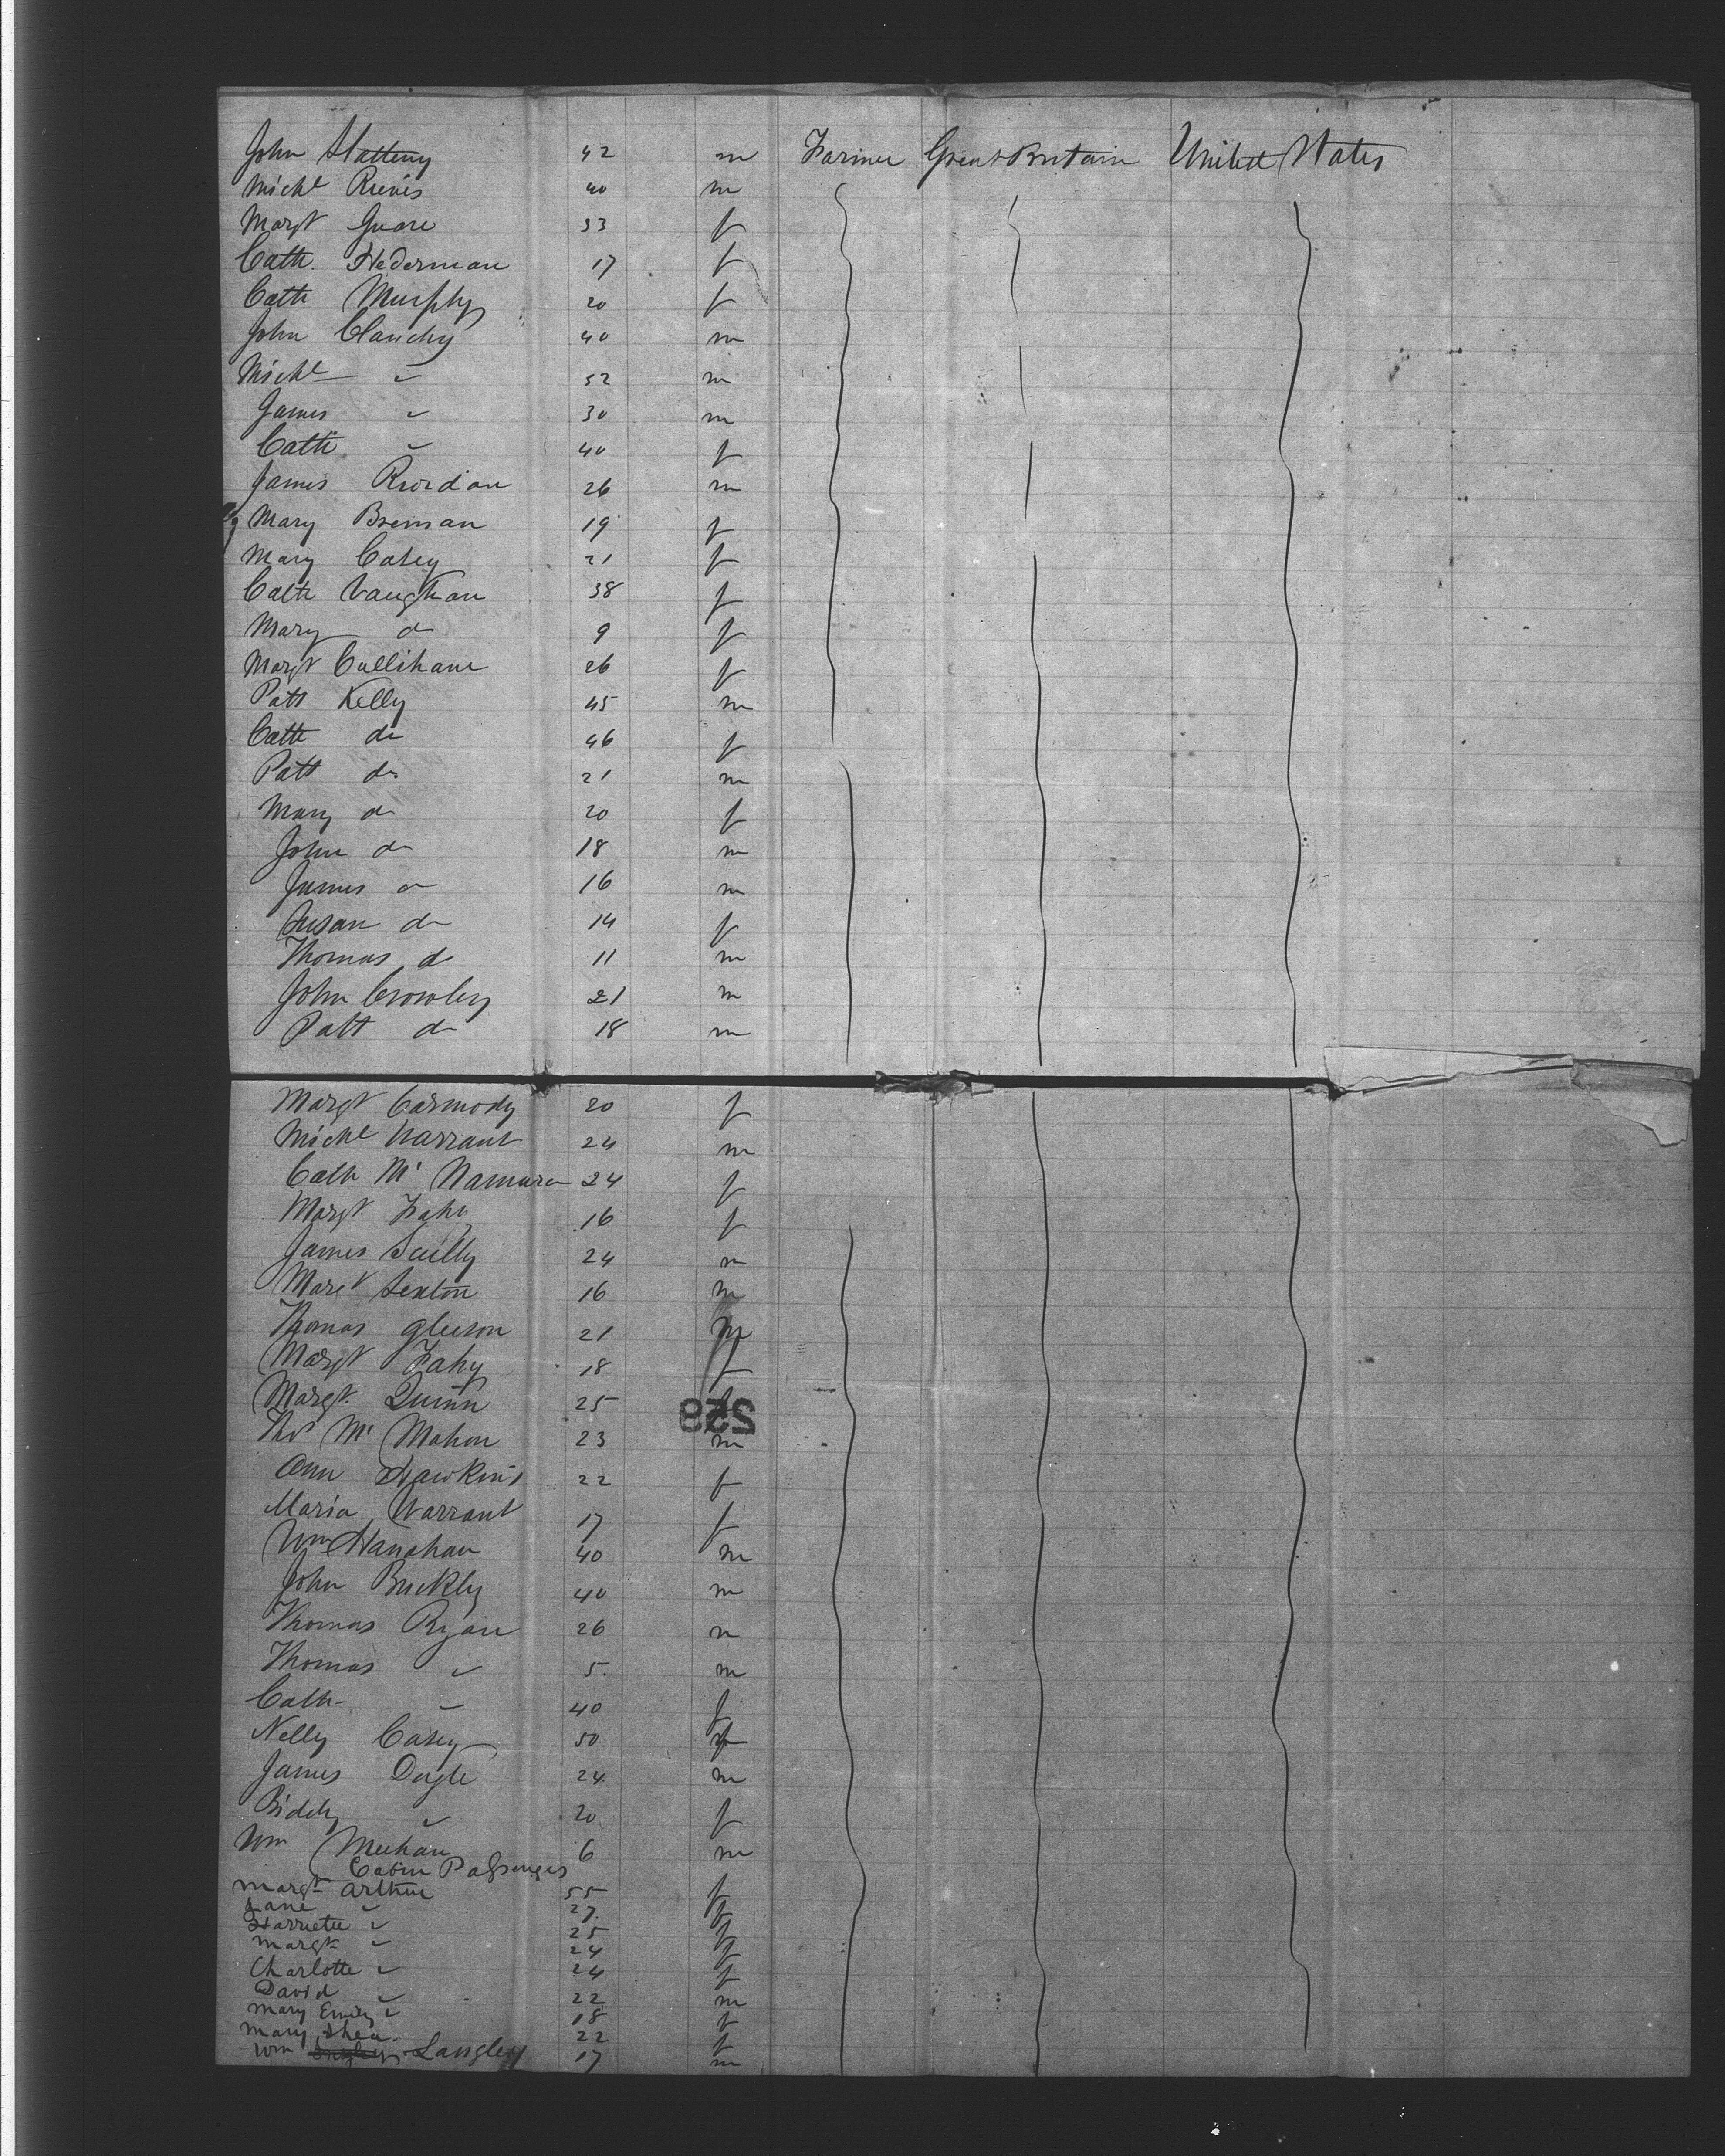 John Slattery 42 m Farmer Great Britain United States
Michl Revis 40 m
Margt Guare 33 f
Cath. Hederman 17 f
Cath Murphy 20 f
John Clanchy 40 m
Michl " 52 m
James " 30 m
Cath " 40 f
James Riordan 26 m
Mary Brennan 19 f
Mary Casey 21 f
Cath Vaughan 38 f
Mary do 9 f
Margt Cullihane 26 f
Patt Kelly 45 m
Cath do 46 f
Patt do 21 m
Mary do 20 f
John do 18 m
James do 16 m
Susan do 14 f
Thomas do 11 m
John Crowley 21 m
Patt do 18 m
Margt Carmody 20 f
Michl Warrant 24 m
Cath Mc Namara 24 f
Margt Fahy 16 f
James Scully 24 m
Margt Sexton 16 m
Thomas Gleeson 21 m
Margt Fahy 18 f
Margt. Quinn 25 f
258
Thos Mc Mahon 23 m
Ann Hawkins 22 f
Maria Warrant 17 f
Wm Hanahan 40 m
John Buckly 40 m
Thomas Ryan 26 m
Thomas " 5 m
Cath " 40 f
Nelly Casey 50 f
James Doyle 24 m
Biddy " 20 f
Wm Meehan 6 m
Cabin Passengers
Margt Arthur 55 f
Jane " 27 f
Harriette " 25 f
Margt " 24 f
Charlotte " 24 f
David " 22 m
Mary Emily " 18 f
Mary Shea 22 f
Wm Langley 17 m